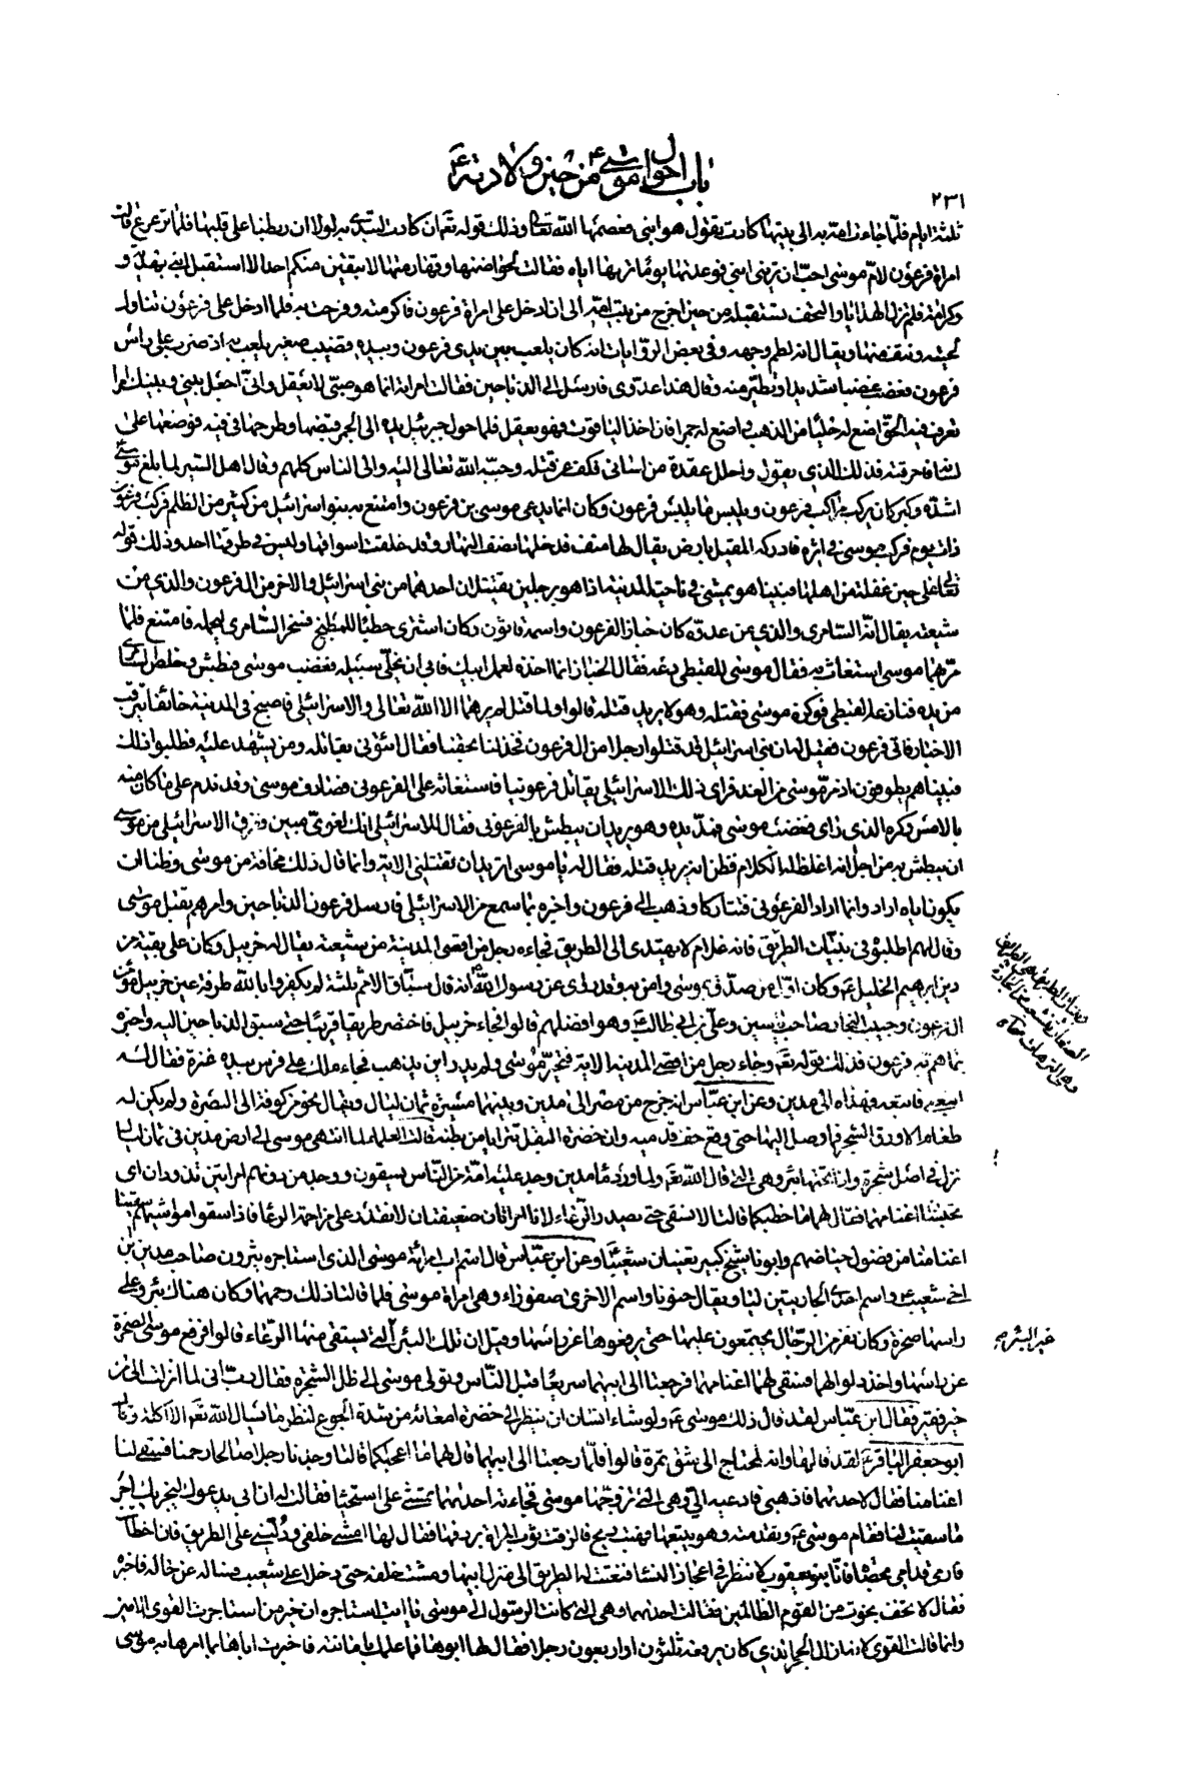 باب احوال موسى ع من حين ولادته ع
٢٣١
ثلثة ايام فلما جاءت امه به الى بيتها كادت تقول هو ابنى فعصمها الله تعالى وذلك قوله تعم ان كادت لتبدى به لولا ان ربطنا على قلبها فلما ترعرع قالت
امراة فرعون لام موسى احب ان ترينى ابنى فوعدتها يوما تزيرها اياه فقالت لحواضنها وقهارمتها لا يبقين منكم احد الا استقبل ابنى بهدية و
كرامة فلم تزل الهدايا والتحف تستقبله من حين اخرج من بيت امه الى ان ادخل على امراة فرعون فاكرمته وفرحت به فلما ادخل على فرعون تناول
لحيته ونتف منها ويقال انه لطم وجهه وفى بعض الروايات انه كان يلعب بين يدى فرعون وبيده قضيب صغير يلعب به اذ ضرب على راس
فرعون فغضب غضبا شديدا وتطير منه وقال هذا عدوى فارسل الى الذباحين فقالت امراته انما هو صبى لا يعقل وانى اجعل بينى وبينك امرا
تعرف فيه الحق اضع له حليا من الذهب واضع له جمرا فان اخذ الياقوت فهو يعقل فلما حول جبرئيل يده الى الجمر قبضها وطرحها فى فيه فوضعها على
لسانه فاحرقته فذلك الذى يقول واحلل عقدة من لسانى فكف عن قتله وحببه الله تعالى اليه والى الناس كلهم وقال اهل السير لما بلغ موسى
اشده وكبر كان يركب مراكب فرعون ويلبس ما يلبس فرعون وكان انما يدعى موسى بن فرعون وامتنع به بنو اسرائيل من كثير من الظلم فركب فرعون
ذات يوم فركب موسى فى اثره فادركه المقيل بارض يقال لها منف فدخلها نصف النهار وقد خلقت اسواقها وليس فى طرقها احد وذلك قوله
تعالى على حين غفلة من اهلها فبينا هو يمشى فى ناحية المدينة اذا هو برجلين يقتتلان احدهما من بنى اسرائيل والاخر من ال فرعون والذى من
شيعته يقال انه السامرى والذى من عدوه كان خباز الفرعون واسمه فاثون وكان اشترى حطبا للمطبخ فسخر السامرى ليحمله فامتنع فلما
مر بهما موسى استغاث به فقال موسى للقبطى دعه فقال الخباز انما اخذه لعمل ابيك فابى ان يخلى سبيله فغضب موسى فبطش وخلص السامرى
من يده فنازعه القبطى فوكزه موسى فقتله وهو لا يريد قتله قالوا ولما قتل لم يرهما الا الله تعالى والاسرائيلى فاصبح فى المدينة خائفا يترقب
الاخبار فاتى فرعون فقيل له ان بنى اسرائيل قد قتلوا رجلا من ال فرعون فخذ لنا بحقنا فقال ائتونى بقاتله ومن يشهد عليه فطلبوا ذلك
فبينا هم يطوفون اذ مر موسى من الغد فراى ذلك الاسرائيلى يقاتل فرعونيا فاستغاثه على الفرعونى فصادف موسى وقد ندم على ما كان منه
بالامس وكره الذى راى فغضب موسى فمد يده وهو يريد ان يبطش بالفرعونى فقال للاسرائيلى انك لغوى مبين وفرق الاسرائيلى من موسى
ان يبطش به من اجل انه اغلظ له الكلام فظن انه يريد قتله فقال له يا موسى اتريد ان تقتلنى الاية وانما قال ذلك مخافة من موسى وظنا ان
يكون اياه اراد وانما اراد الفرعونى فتتاركا وذهب الى فرعون واخبره بما سمع من الاسرائيلى فارسل فرعون الذباحين وامرهم بقتل موسى
وقال لهم اطلبوه فى بنيات الطريق فانه غلام لا يهتدى الى الطريق فجاءه رجل من اقصى المدينة من شيعته يقال له خربيل وكان على بقية من
دين ابرهيم الخليل ع وكان اول من صدق بموسى وامن به وقد روى عن رسول الله ص انه قال سباق الامم ثلثة لم يكفروا بالله طرفة عين خربيل مؤمن
ال فرعون وحبيب النجار صاحب يس وعلى بن ابى طالب ع وهو افضلهم قالوا فجاء خربيل فاختصر طريقا قريبا حتى سبق الذباحين اليه واخبره
بما هم به فرعون فذلك قوله تعم وجاء رجل من اقصى المدينة الاية فتحير موسى ولم يدر اين يذهب فجاء ملك على فرس بيده عنزة فقال له
اتبعنى فاتبعه وهداه الى مدين وعن ابن عباس انه خرج من مصر الى مدين وبينهما مسيرة ثمان ليال ويقال نحو من كوفة الى البصرة ولم يكن له
طعام الا ورق الشجر فما وصل اليها حتى وقع خف قدميه وان خضرة البقل تترايا من بطنه قالت العلماء لما انتهى موسى الى ارض مدين فى ثمان ليال
نزل فى اصل شجرة واذا تحتها بئر وهى التى قال الله تعم ولما ورد ماء مدين وجد عليه امة من الناس يسقون ووجد من دونهم امراتين تذودان اى
تحبسان اغنامهما فقال لهما ما خطبكما قالتا لا نسقى حتى يصدر الرعاء لانا امراتان ضعيفتان لا نقدر على مزاحمة الرعاء فاذا سقوا مواشيهم سقينا
اغنامنا من فضول حياضهم وابونا شيخ كبير تعنيان شعيبا وعن ابن عباس قال اسم اب امراة موسى الذى استاجره يثرون صاحب مدين ابن
اخى شعيب ع واسم احدى الجاريتين ليا ويقال حنونا واسم الاخرى صفوراء وهى امراة موسى فلما قالتا ذلك رحمهما وكان هناك بئر وعلى
راسها صخرة وكان نفر من الرجال يجتمعون عليها حتى يرفعوها عن راسها وقيل ان تلك البئر التى يستقى منها الرعاء قالوا فرفع موسى الصخرة
عن راسها واخذ دلوا لهما فسقى لهما اغنامهما فرجعتا الى ابيهما سريعا قبل الناس وتولى موسى الى ظل الشجرة فقال رب انى لما انزلت الى من
خير فقير فقال ابن عباس لقد قال ذلك موسى ع ولو شاء انسان ان ينظر الى خضرة امعائه من شدة الجوع لنظر ما يسال الله تعم الا اكلة وقال
ابو جعفر الباقر ع لقد قالها وانه لمحتاج الى شق تمرة قالوا فلما رجعتا الى ابيهما قال لهما ما اعجلكما قالتا وجدنا رجلا صالحا رحمنا فسقى لنا
اغنامنا فقال لاحديهما فاذهبى فادعيه الى وهى التى تزوجها موسى فجاءته احدهما تمشى على استحيا فقالت له ان ابى يدعوك ليجزيك اجر
ما سقيت لنا فقام موسى ع وتقدمته وهو يتبعها فهبت ريح فالزقت ثوب المراة بردفها فقال لها امشى خلفى ودلينى على الطريق فان اخطات
فارمى قدامى بحصاة فانا بنو يعقوب لا ننظر فى اعجاز النساء فنعتت له الطريق الى منزل ابيها ومشت خلفه حتى دخلا على شعيب فساله عن حاله فاخبره
فقال لا تخف نجوت من القوم الظالمين فقالت احدهما وهى التى كانت الرسول الى موسى يا ابت استاجره ان خير من استاجرت القوى الامين
وانما قالت القوى لانه ازال الحجر الذى كان يرفعه ثلثون او اربعون رجلا فقال لها ابوها فما علمك بامانته فاخبرت اباها بما امرها به موسى
بنيات الطريق هى الطرق
الصغار تتشعب من الجادة
وهى الترهات صحاح
غير البئر صح